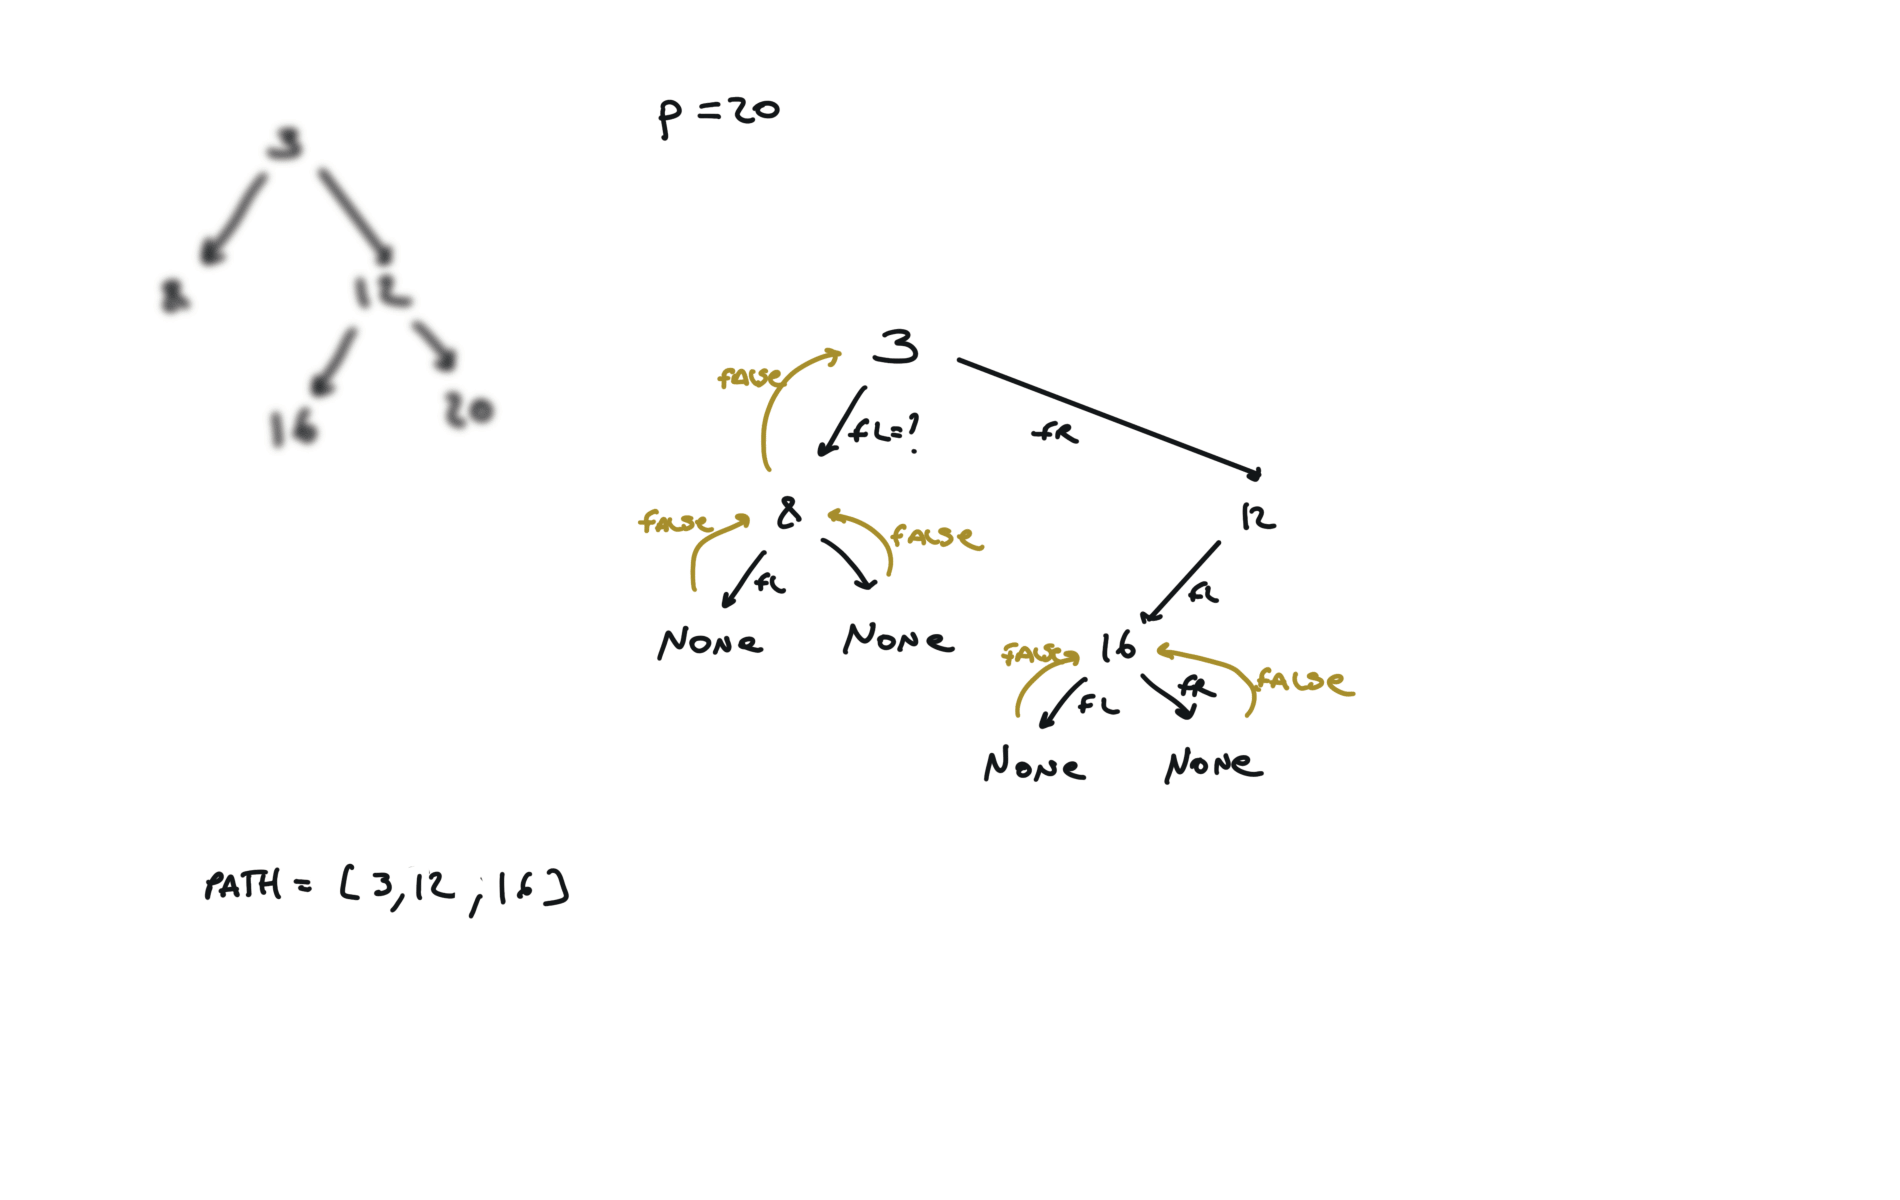 p = 20
3
8
12
16
20
3
fALSe
fL=?
fR
8
12
fALSe
fALSe
fL
fL
None
None
16
fALSe
fALSe
fL
fR
None
None
PATH = [3,12,16]